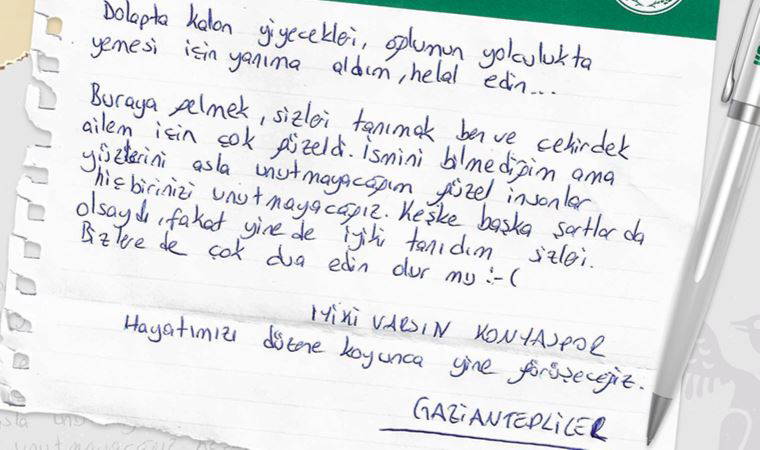 Dolapta kalan yiyecekleri, oğlumun yolculukta
yemesi için yanıma aldım, helal edin...
Buraya gelmek, sizleri tanımak ben ve çekirdek
ailem için çok güzeldi. İsmini bilmediğim ama
yüzlerini asla unutmayacağım güzel insanlar
hiçbirinizi unutmayacağız. Keşke başka şartlarda
olsaydı, fakat yine de iyiki tanıdım sizleri.
Bizlere de çok dua edin olur mu :-(
İYİKİ VARSIN KONYASPOR
Hayatımızı düzene koyunca yine görüşeceğiz.
GAZİANTEPLİLER